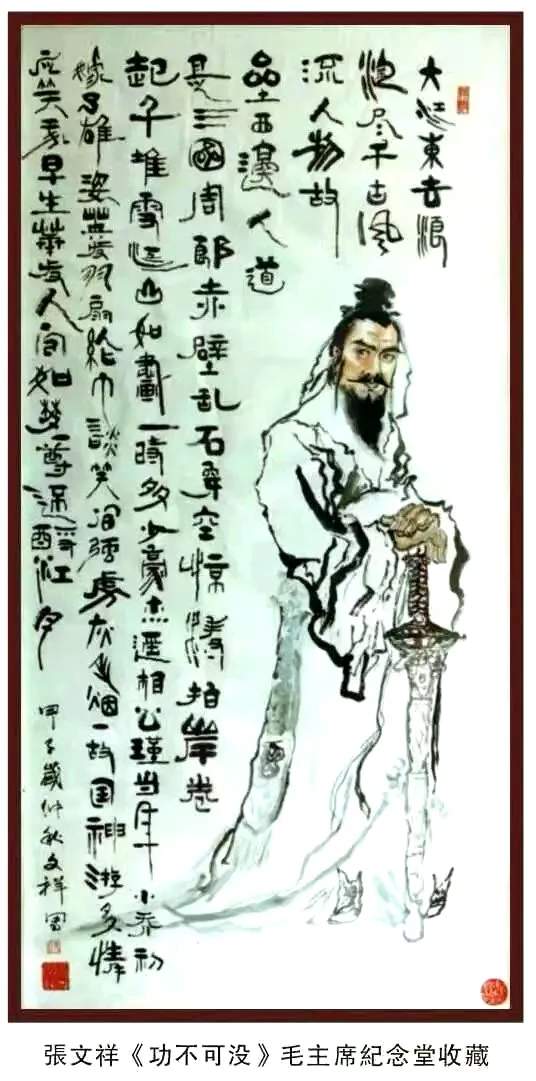 大江東去浪
淘尽千古風
流人物故
壘西邊人道
是三國周郎赤壁乱石穿空惊濤拍岸卷
起千堆雪江山如畫一時多少豪杰遥想公瑾当年小乔初
嫁了雄姿英发羽扇纶巾談笑间强虏灰飞烟一故国神游多情
应笑我早生華发人间如梦一尊還酹江月
甲子歲仲秋文祥画
張文祥《功不可没》毛主席紀念堂收藏